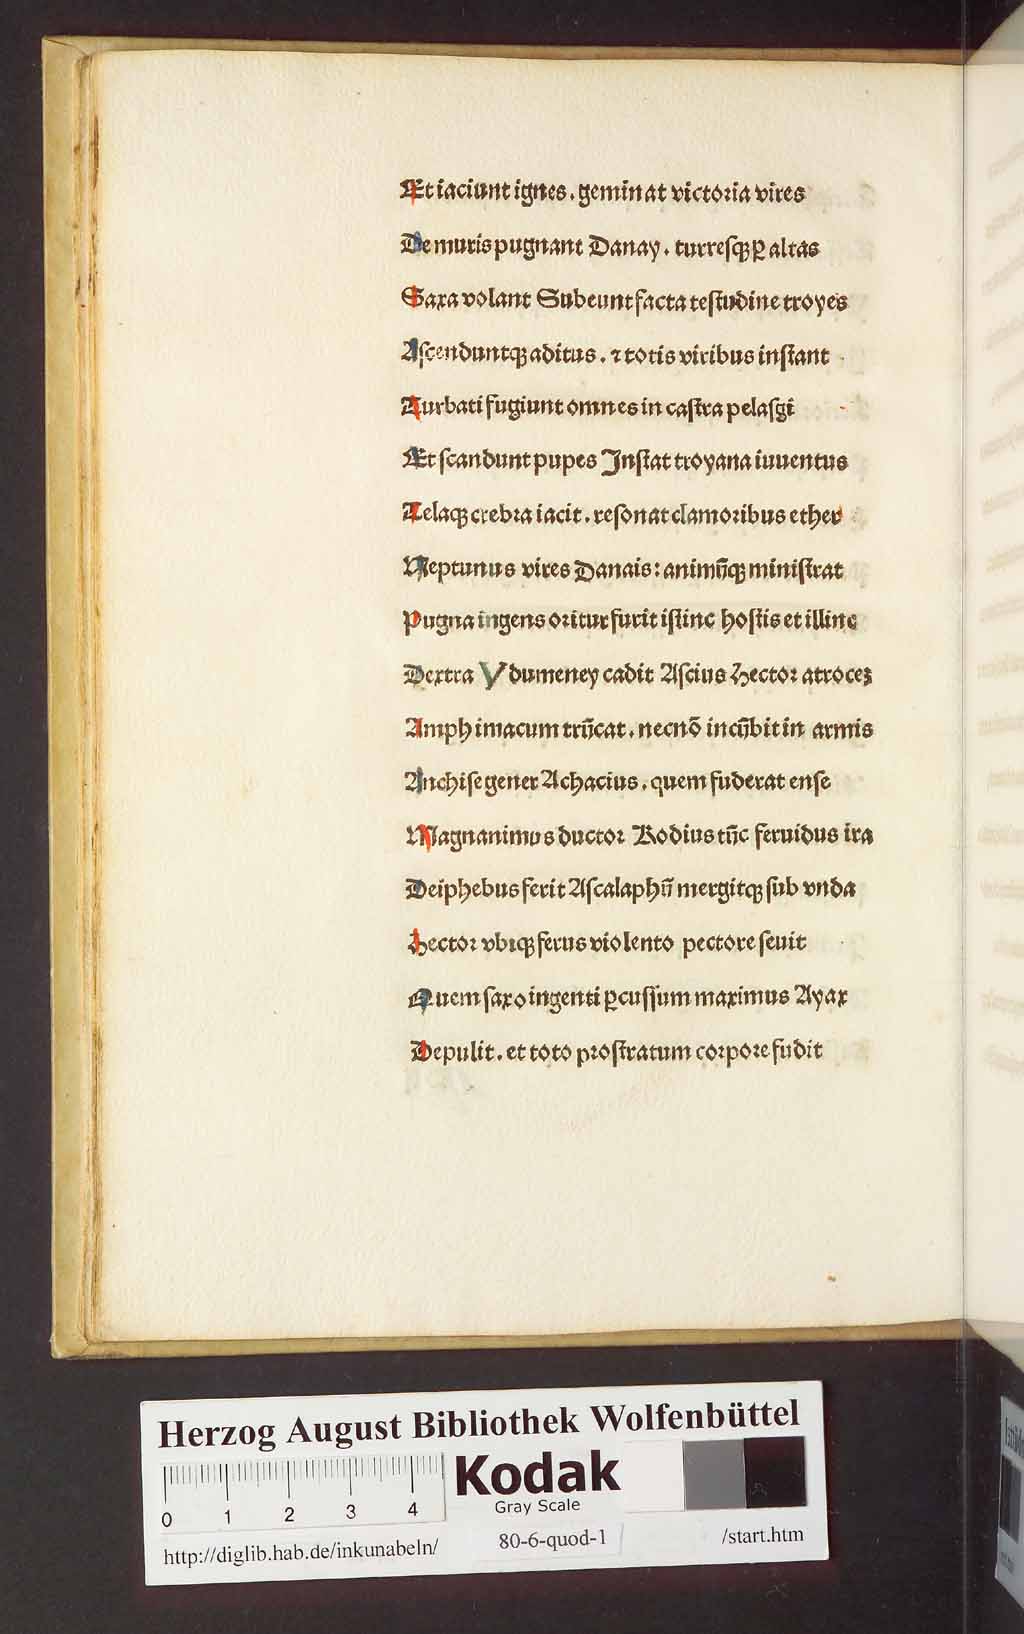 Et iaciunt ignes . geminat victoria vires
De muris pugnant Danay . turresqꝫ ꝑ altas
Saxa volant Subeunt facta testudine troyes
Ascenduntqꝫ aditus . ⁊ totis viribus instant
Turbati fugiunt omnes in castra pelasgi
Et scandunt pupes Instat troyana iuuentus
Telaqꝫ crebra iacit . resonat clamoribus ether
Neptunus vires Danais : animūqꝫ ministrat
Pugna ingens oritur furit istinc hostis et illinc
Dextra Ydumeney cadit Ascius hector atrocez
Amphimacum trūcat . necnō incūbit in armis
Anchise gener Achacius . quem fuderat ense
Magnanimus ductor Rodius tūc feruidus ira
Deiphebus ferit Ascalaphū mergitqꝫ sub vnda
Hector vbiqꝫ ferus violento pectore seuit
Quem saxo ingenti ꝑcussum maximus Ayax
Depulit . et toto prostratum corpore fudit
Herzog August Bibliothek Wolfenbüttel
Kodak
Gray Scale
0 1 2 3 4
http://diglib.hab.de/inkunabeln/ 80-6-quod-1 /start.htm